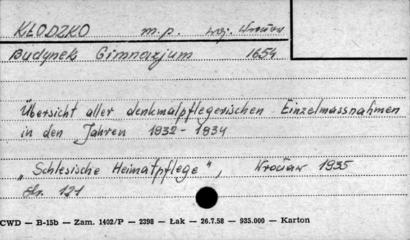 KŁODZKO m.p. woj. Wrocław
Budynek Gimnazjum 1654
Übersicht aller denkmalpflegerischen Einzelmassnahmen
in den Jahren 1932 - 1934
„Schlesische Heimatpflege", Wrocław 1935
str. 121
CWD — B-15b — Zam. 1402/P — 2398 — Łak — 26.7.58 — 935.000 — Karton